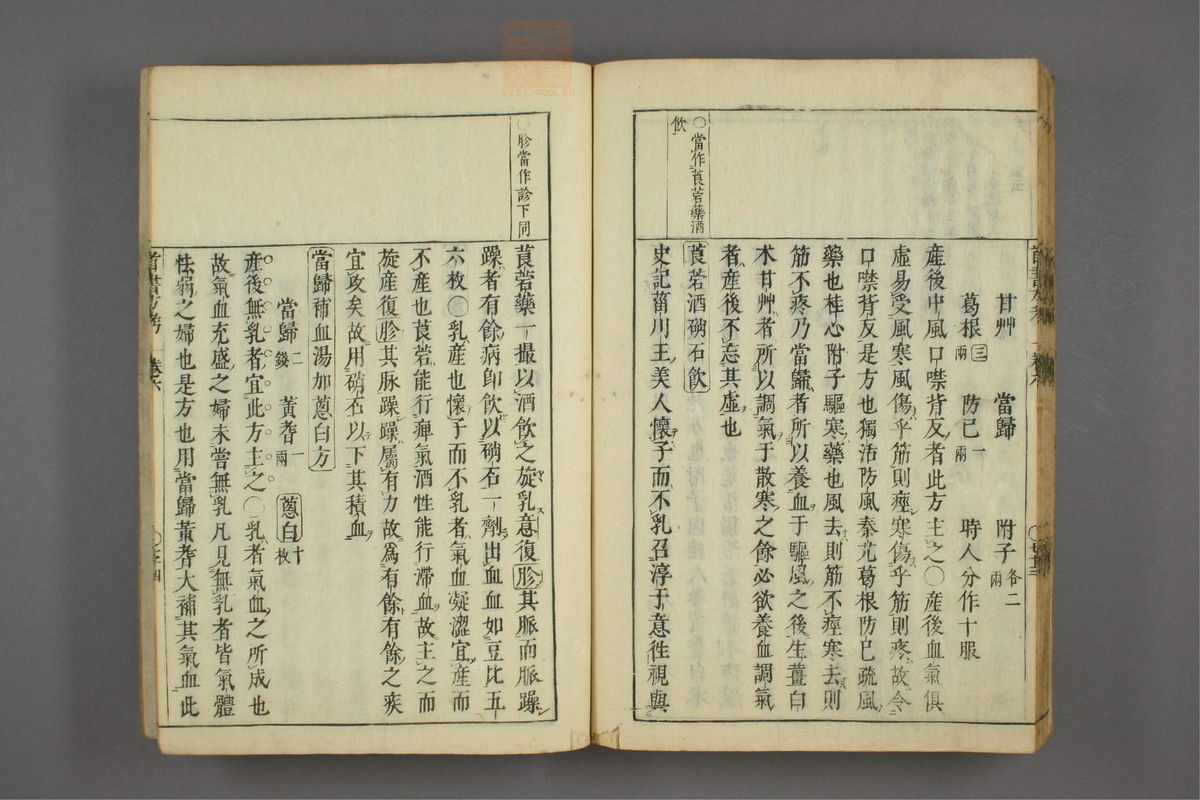 〇當作莨菪藥酒
飲
甘艸 當歸 附子各二兩
葛根三兩 防己一兩 時人分作十服
產後中風口噤背反者此方主之〇產後血氣俱
虛易受風寒風傷乎筋則痙寒傷乎筋則疼故令
口噤背反是方也獨活防風秦艽葛根防己疏風
藥也桂心附子驅寒藥也風去則筋不痙寒去則
筋不疼乃當歸者所以養血于驅風之後生薑白
朮甘艸者所以調氣于散寒之餘必欲養血調氣
者產後不忘其虛也
莨菪酒硝石飲
史記菑川王美人懷子而不乳召淳于意徃視與
〇胗當作診下同
莨菪藥一撮以酒飲之旋乳意復胗其脈而脈躁
躁者有餘病即飲以硝石一劑出血血如豆比五
六枚〇乳產也懷子而不乳者氣血凝澀宜產而
不產也莨菪能行痺氣酒性能行滯血故主之而
旋產復胗其脉躁躁屬有力故爲有餘有餘之疾
宜攻矣故用硝石以下其積血
當歸補血湯加蔥白方
當歸二錢 黃耆一兩 蔥白十枚
產後無乳者宜此方主之〇乳者氣血之所成也
故氣血充盛之婦未嘗無乳凡見無乳者皆氣體
怯弱之婦也是方也用當歸黃耆大補其氣血此
卷六